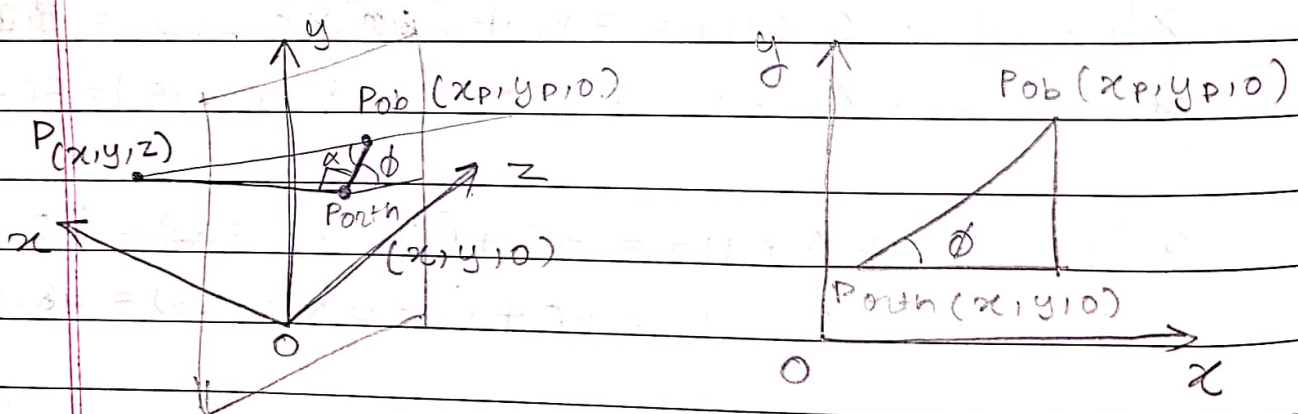 y
Pob (xp, yp, 0)
P(x,y,z)
α
ϕ
z
Porth
(x, y, 0)
x
O
y
Pob (xp, yp, 0)
ϕ
Porth (x, y, 0)
O
x